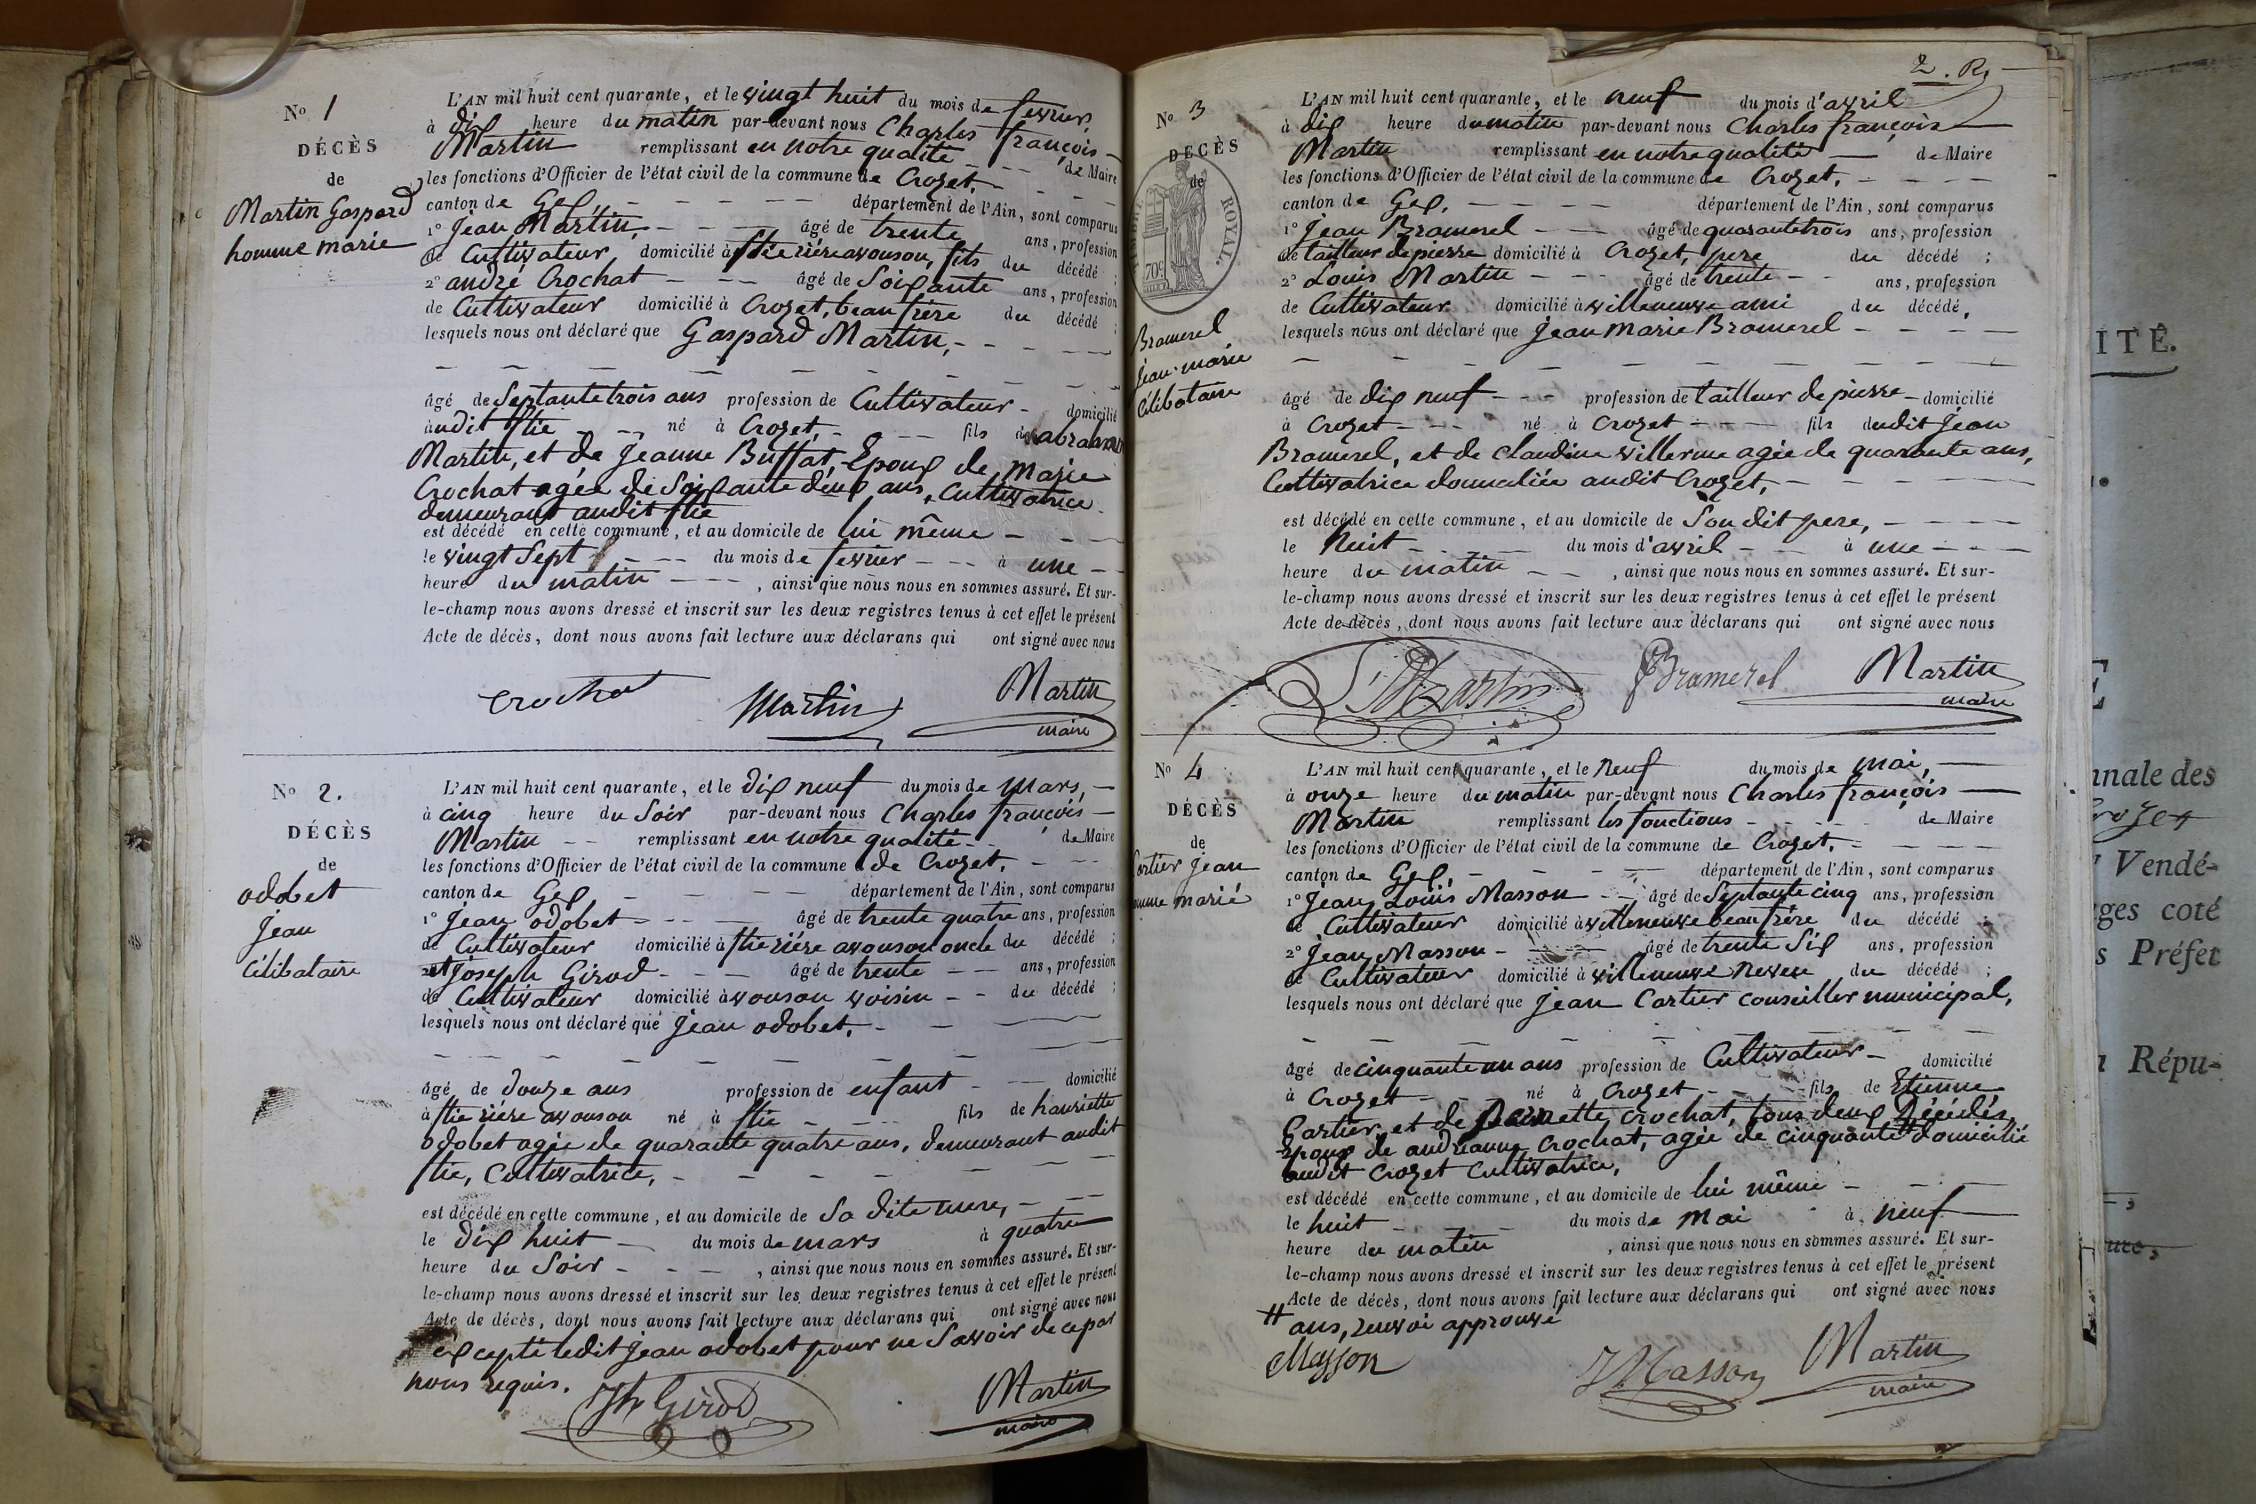 No 1
DÉCÈS
de
Martin Gaspard
homme marié
L'AN mil huit cent quarante, et le vingt huit du mois de fevrier
à dix heure du matin par-devant nous Charles françois
Martin remplissant en notre qualité de Maire
les fonctions d'Officier de l'état civil de la commune de Crozet,
canton de Gex, département de l'Ain, sont comparus
1° Jean Martin, âgé de trente ans, profession
de Cultivateur domicilié à flie riére avouson, fils du décédé ;
2° andré Crochat âgé de Soixante ans, profession
de Cultivateur domicilié à Crozet, beaufrère du décédé ;
lesquels nous ont déclaré que Gaspard Martin,
âgé de Septante trois ans profession de Cultivateur domicilié
audit flie né à Crozet, fils d'abraham
Martin, et de Jeanne Buffat, Epoux de Marie
Crochat agée de Soixante deux ans, Cultivatrice
demeurant audit flie
est décédé en cette commune, et au domicile de lui même
le vingt Sept du mois de fevrier à une
heure du matin, ainsi que nous nous en sommes assuré. Et sur-
le-champ nous avons dressé et inscrit sur les deux registres tenus à cet effet le présent
Acte de décès, dont nous avons fait lecture aux déclarans qui ont signé avec nous
Crochat Martin Martin
maire
No 2.
DÉCÈS
de
odobet
Jean
Célibataire
L'AN mil huit cent quarante, et le dix neuf du mois de Mars,
à cinq heure du Soir par-devant nous Charles françois
Martin remplissant en notre qualité de Maire
les fonctions d'Officier de l'état civil de la commune de Crozet,
canton de Gex département de l'Ain, sont comparus
1° Jean odobet âgé de trente quatre ans, profession
de Cultivateur domicilié à flie riére avouson oncle du décédé ;
2° et Joseph Girod âgé de trente ans, profession
de Cultivateur domicilié à avouson voisin du décédé ;
lesquels nous ont déclaré que Jean odobet,
âgé de douze ans profession de enfant domicilié
à flie riére avouson né à flie fils de henriette
odobet agée de quarante quatre ans, demeurant audit
flie, Cultivatrice,
est décédé en cette commune, et au domicile de Sa dite mere,
le dix huit du mois de mars à quatre
heure du Soir, ainsi que nous nous en sommes assuré. Et sur-
le-champ nous avons dressé et inscrit sur les deux registres tenus à cet effet le présent
Acte de décès, dont nous avons fait lecture aux déclarans qui ont signé avec nous
excepté ledit Jean odobet pour ne Savoir de ce par
nous requis.
Jh Girod Martin
maire
2. R.
No 3
DÉCÈS
de
ROYAL.
70c
Bramerel
Jean-marie
Célibataire
L'AN mil huit cent quarante, et le neuf du mois d'avril
à dix heure du matin par-devant nous Charles françois
Martin remplissant en notre qualité de Maire
les fonctions d'Officier de l'état civil de la commune de Crozet,
canton de Gex, département de l'Ain, sont comparus
1° Jean Bramerel âgé de quarante trois ans, profession
de tailleur de pierre domicilié à Crozet, pere du décédé ;
2° Louis Martin âgé de trente ans, profession
de Cultivateur domicilié à villeneuve ami du décédé,
lesquels nous ont déclaré que Jean Marie Bramerel
âgé de dix neuf profession de tailleur de pierre domicilié
à Crozet né à Crozet fils dudit Jean
Bramerel, et de Claudine Villerme agée de quarante ans,
Cultivatrice domiciliée audit Crozet,
est décédé en cette commune, et au domicile de Son dit pere,
le huit du mois d'avril à une
heure du matin, ainsi que nous nous en sommes assuré. Et sur-
le-champ nous avons dressé et inscrit sur les deux registres tenus à cet effet le présent
Acte de décès, dont nous avons fait lecture aux déclarans qui ont signé avec nous
L Martin Bramerel Martin
maire
No 4
DÉCÈS
de
Cartier Jean
homme marié
L'AN mil huit cent quarante, et le neuf du mois de mai,
à onze heure du matin par-devant nous Charles françois
Martin remplissant les fonctions de Maire
les fonctions d'Officier de l'état civil de la commune de Crozet,
canton de Gex, département de l'Ain, sont comparus
1° Jean Louis Masson âgé de Septante cinq ans, profession
de Cultivateur domicilié à villeneuve beaufrère du décédé ;
2° Jean Masson âgé de trente Six ans, profession
de Cultivateur domicilié à villeneuve neveu du décédé ;
lesquels nous ont déclaré que Jean Cartier conseiller municipal,
âgé de cinquante un ans profession de Cultivateur domicilié
à Crozet né à Crozet fils de Etienne
Cartier, et de Pernette Crochat, tous deux Décédés,
Epoux de andrianne Crochat, agée de cinquante # domicilié
audit Crozet Cultivatrice,
est décédé en cette commune, et au domicile de lui même
le huit du mois de Mai à neuf
heure du matin, ainsi que nous nous en sommes assuré. Et sur-
le-champ nous avons dressé et inscrit sur les deux registres tenus à cet effet le présent
Acte de décès, dont nous avons fait lecture aux déclarans qui ont signé avec nous
# ans, renvoi approuvé
Masson J Masson Martin
maire
ITÉ.
nnale des
Crozet
Vendé-
ges coté
s Préfet
Répu-